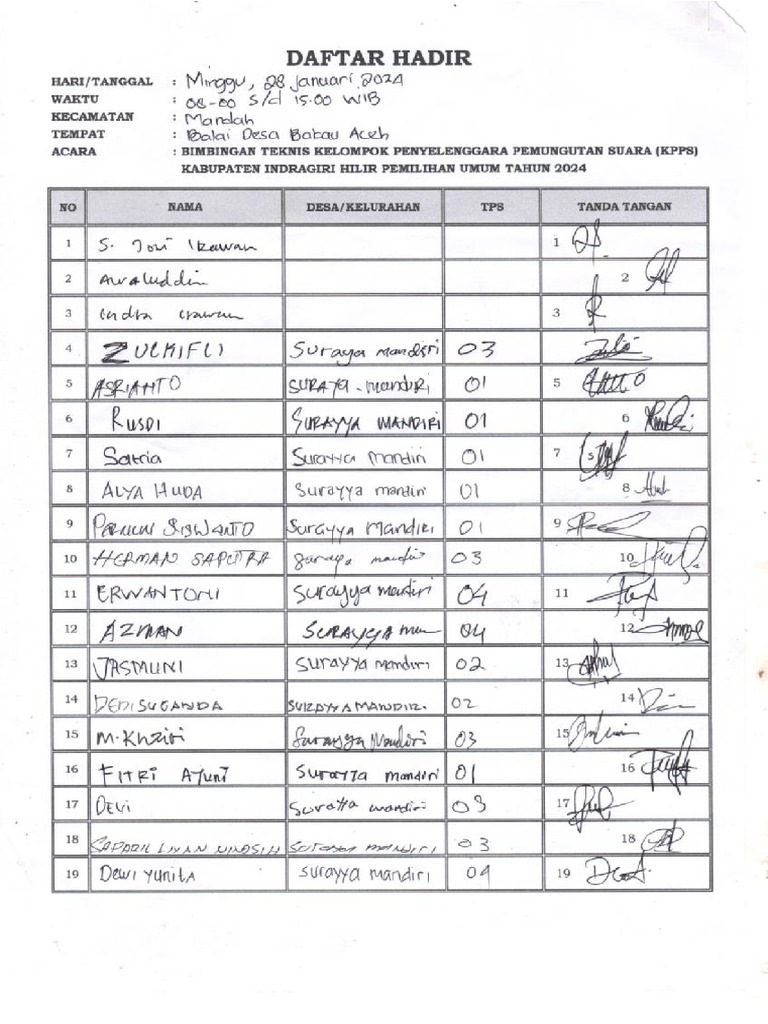 DAFTAR HADIR
HARI/TANGGAL : Minggu, 28 Januari 2024
WAKTU : 08-00 s/d 15.00 WIB
KECAMATAN : Mandah
TEMPAT : Balai Desa Bakau Aceh
ACARA : BIMBINGAN TEKNIS KELOMPOK PENYELENGGARA PEMUNGUTAN SUARA (KPPS)
KABUPATEN INDRAGIRI HILIR PEMILIHAN UMUM TAHUN 2024
NO NAMA DESA/KELURAHAN TPS TANDA TANGAN
1 S. Joni Irawan 1
2 Awaluddin 2
3 Indra Irawan 3
4 ZULKIFLI Suraya mandiri 03
5 ASRIANTO SURAYA-mandiri 01 5
6 RUSDI SURAYYA MANDIRI 01 6
7 Satria Surayya Mandiri 01 7
8 ALYA HUDA Surayya mandiri 01 8
9 SISWANTO Surayya Mandiri 01 9
10 HERMAN SAPUTRA Suraya mandiri 03 10
11 ERWANTONI Surayya mandiri 04 11
12 AZMAN SURAYYA man 04 12
13 JASMUNI Surayya mandiri 02 13
14 DEDI SUGANDA SURAYYA MANDIRI. 02 14
15 M. Surayya Mandiri 03 15
16 FITRI AYUNI Surayya mandiri 01 16
17 DEVI Surayya mandiri 03 17
18 mandiri 03 18
19 Dewi Yunita Surayya mandiri 04 19